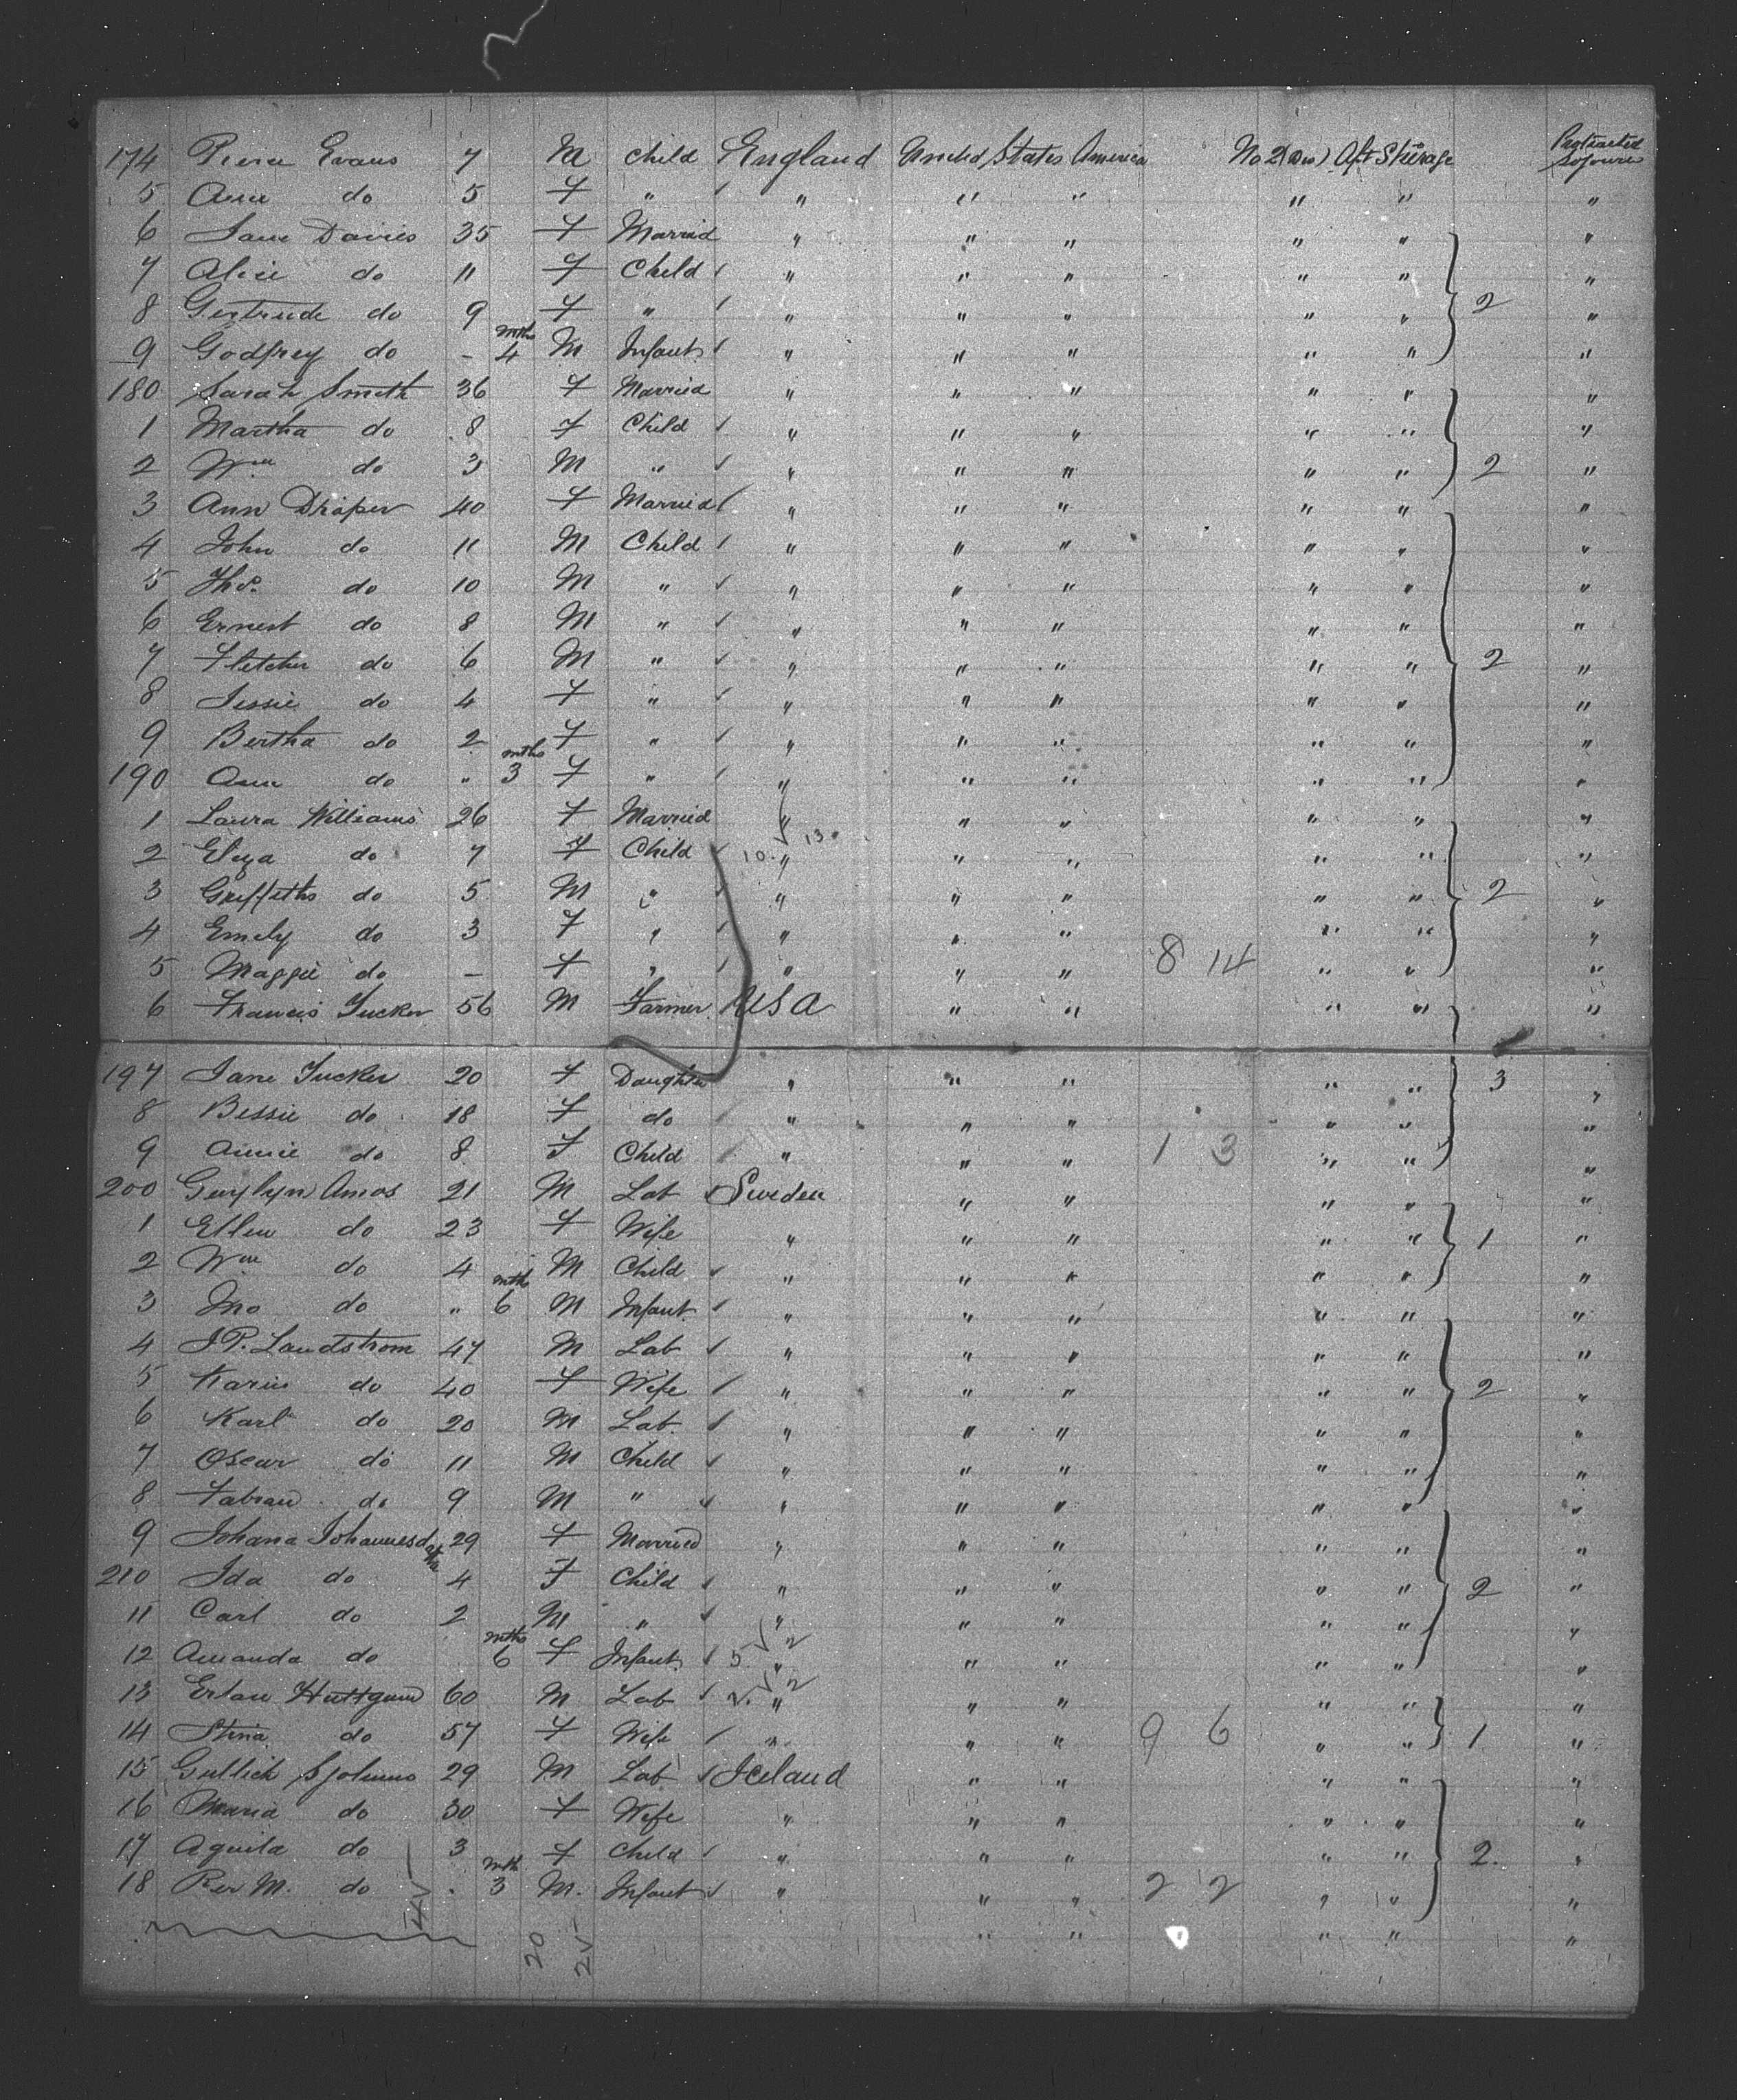 174 Pierce Evans 7 M Child England United States America No 2 (Dk) Aft Steerage Protracted Sojourn
5 Ann do 5 F " " " " " " "
6 Jane Davies 35 F Married " " " " " "
7 Alice do 11 F Child " " " " " "
8 Gertrude do 9 F " " " " " " 2 "
9 Godfrey do - 4 mths M Infant " " " " " "
180 Sarah Smith 36 F Married " " " " " "
1 Martha do 8 F Child " " " " " "
2 Wm do 3 M " " " " " " 2 "
3 Ann Draper 40 F Married " " " " " "
4 John do 11 M Child " " " " " "
5 Thos. do 10 M " " " " " " "
6 Ernest do 8 M " " " " " " "
7 Fletcher do 6 M " " " " " " 2 "
8 Jessie do 4 F " " " " " " "
9 Bertha do 2 F " " " " " " "
190 Ann do " 3 mths F " " " " " " "
1 Laura Williams 26 F Married " " " " " "
2 Eliza do 7 F Child 10. 13 " " " " " "
3 Griffiths do 5 M " " " " " " 2 "
4 Emily do 3 F " " " " " " "
5 Maggie do - F " " " " 8 14 " " "
6 Francis Tucker 56 M Farmer USA " " " " "
197 Jane Tucker 20 F Daughter " " " " " 3 "
8 Bessie do 18 F do " " " " " "
9 Annie do 8 F Child " " " 1 3 " " "
200 Gwylyn Amos 21 M Lab Sweden " " " " "
1 Ellen do 23 F Wife " " " " " 1 "
2 Wm do 4 M Child " " " " " "
3 Jno do " 6 mths M Infant " " " " " "
4 J P. Landstrom 47 M Lab " " " " " "
5 Karin do 40 F Wife " " " " " 2 "
6 Karl do 20 M Lab. " " " " " "
7 Oscar do 11 M Child " " " " " "
8 Fabian do 9 M " " " " " " "
9 Johana Johannesdatter 29 F Married " " " " " "
210 Ida do 4 F Child " " " " " 2 "
11 Carl do 2 M " " " " " " "
12 Amanda do 6 mths F Infant 5 2 " " " " " "
13 Erlan Huttgund 60 M Lab 2. 2 " " " " " "
14 Stina do 57 F Wife " " " 9 6 " " 1 "
15 Gullick 29 M Lab Iceland " " " " "
16 Maria do 30 F Wife " " " " " "
17 Aquila do 3 F Child " " " " " 2. "
18 Per M. do . 3 mth M. Infant " " " 2 2 " " "
" " " " "
20